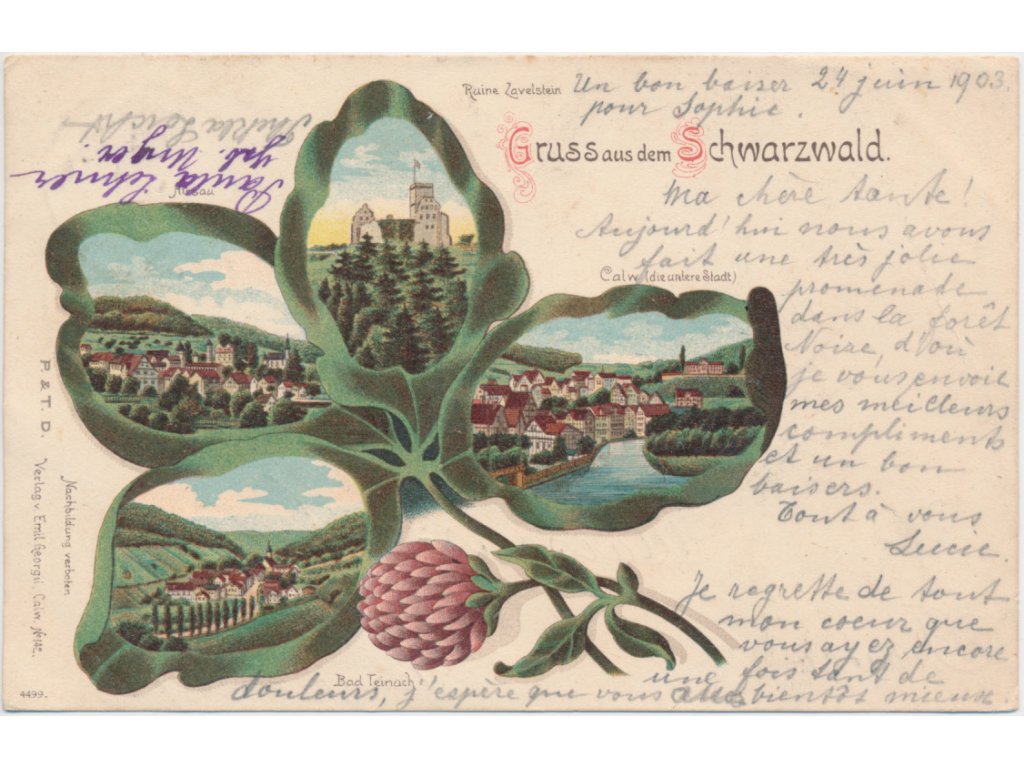 Ruine Zavelstein
Un bon baiser 24 juin 1903.
pour Sophie.
Gruss aus dem Schwarzwald.
Paula Lehner
geb. Unger.
Hirsau
Ma chère tante!
Aujourd'hui nous avons
fait une très jolie
Calw (die untere Stadt)
promenade
dans la forêt
Noire, d'où
je vous envoie
mes meilleurs
compliments
et un bon
baisers.
Tout à vous
Lucie
Je regrette de tout
mon coeur que
vous ayez encore
une fois tant de
Bad Teinach
douleurs, j'espère que vous bientôt mieux
P. & T. D. Verlag v. Emil Georgii, Calw. № 142.
Nachbildung verboten
4499.